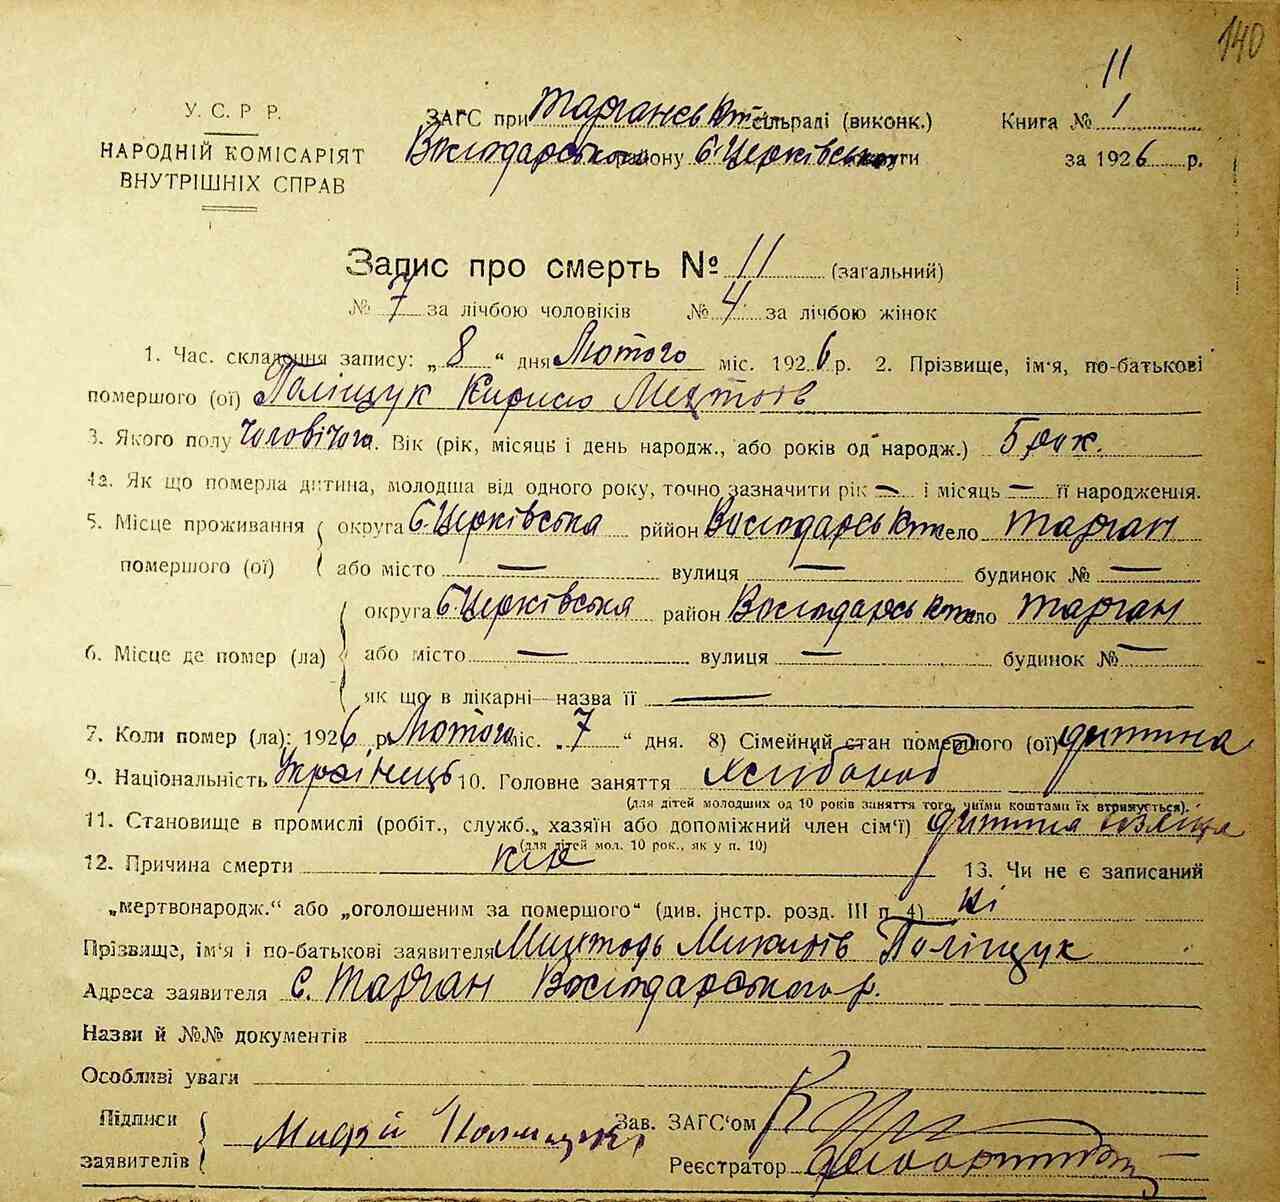 140
У.С.Р.Р.
НАРОДНІЙ КОМІСАРІЯТ
ВНУТРІШНІХ СПРАВ
ЗАГС при Тарганськ сільраді (виконк.)
Володарського району Б.Церківськ округи
11
Книга № 1
за 1926 р.
Запис про смерть № 11 (загальний)
№ 7 за лічбою чоловіків № 4 за лічбою жінок
1. Час. складення запису: „ 8 “ дня Лютого міс. 1926 р. 2. Прізвище, ім'я, по-батькові
помершого (ої) Поліщук Кирило
3. Якого полу Чоловічого. Вік (рік, місяць і день народж., або років од народж.) 5 рок.
4а. Як що померла дитина, молодша від одного року, точно зазначити рік — і місяць — її народження.
5. Місце проживання округа Б.Церківська рййон Володарськ село Тарган
помершого (ої) або місто — вулиця — будинок № —
округа Б.Церківська район Володарськ село Тарган
6. Місце де помер (ла) або місто — вулиця — будинок № —
як що в лікарні—назва її —
7. Коли помер (ла): 1926 р Лютого міс. „ 7 “ дня. 8) Сімейний стан помершого (ої) дитина
9. Національність Українець 10. Головне заняття Хлібороб
(для дітей молодших од 10 років заняття того, чиїми коштами їх втримується).
11. Становище в промислі (робіт., служб., хазяїн або допоміжний член сім'ї) дитина
(для дітей мол. 10 рок., як у п. 10)
12. Причина смерти 13. Чи не є записаний
„мертвонародж.“ або „оголошеним за помершого“ (див. інстр. розд. III п 4) Ні
Прізвище, ім'я і по-батькові заявителя Поліщук
Адреса заявителя с. Тарган Володарського р.
Назви й №№ документів
Особливі уваги
Підписи
заявителів
Зав. ЗАГС'ом
Реєстратор